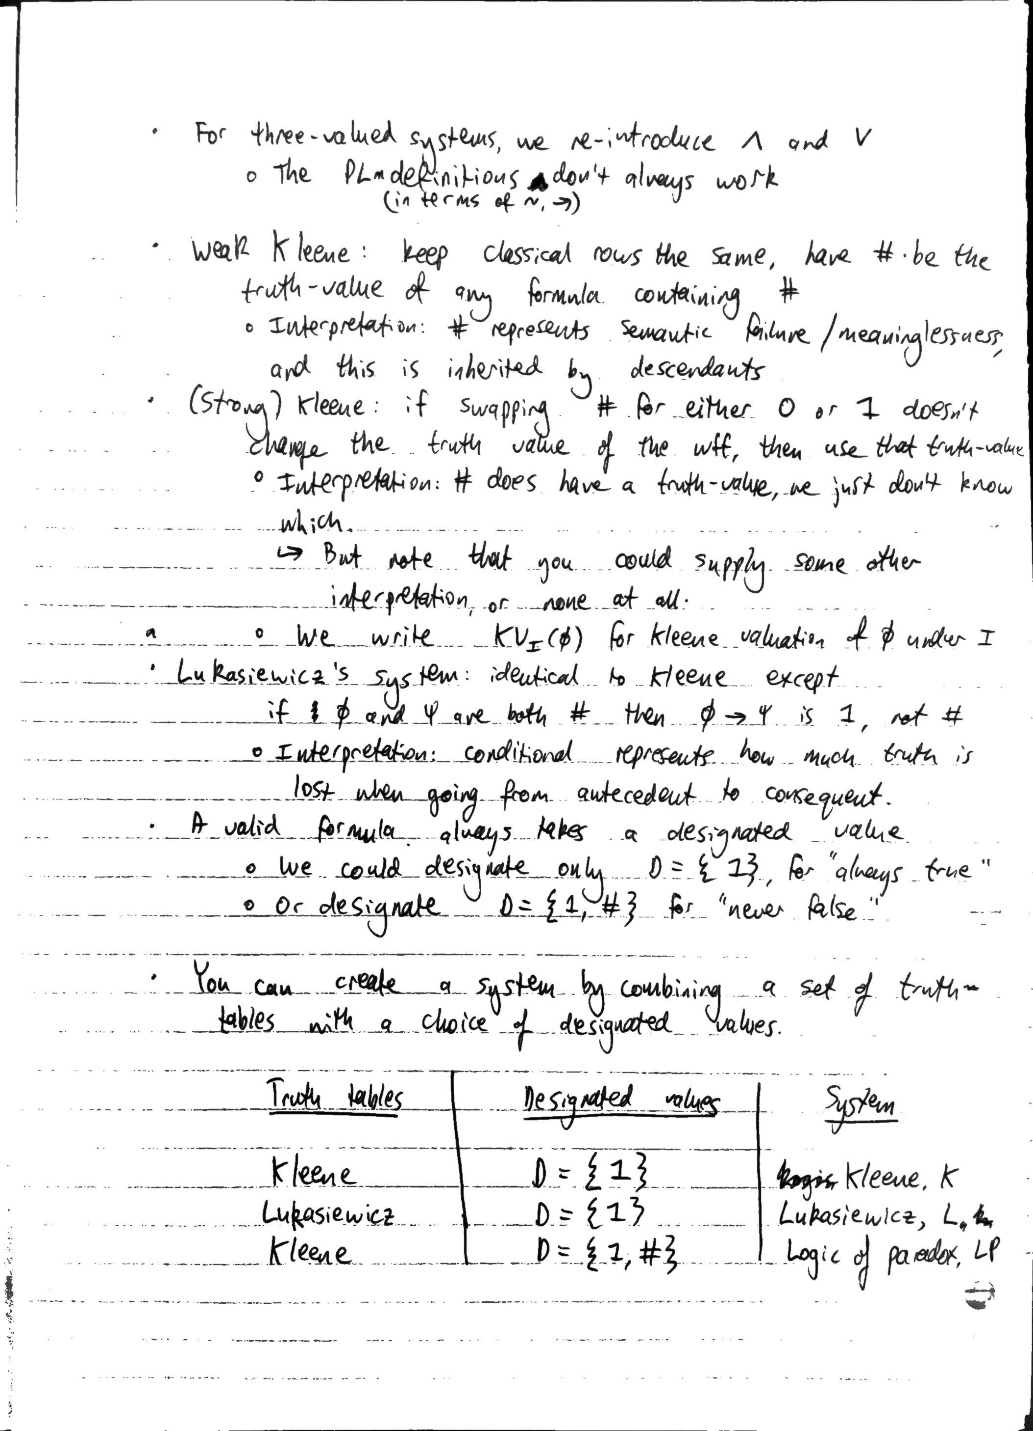 · For three-valued systems, we re-introduce ∧ and ∨
o The PL-definitions don't always work
(in terms of ~, →)
· Weak Kleene: keep classical rows the same, have # be the
truth-value of any formula containing #
o Interpretation: # represents semantic failure/meaninglessness,
and this is inherited by descendants
· (Strong) Kleene: if swapping # for either 0 or 1 doesn't
change the truth value of the wff, then use that truth-value
o Interpretation: # does have a truth-value, we just don't know
which.
↳ But note that you could supply some other
interpretation, or none at all.
o We write KV_I(ϕ) for Kleene valuation of ϕ under I
· Lukasiewicz's system: identical to Kleene except
if ϕ and ψ are both # then ϕ → ψ is 1, not #
o Interpretation: conditional represents how much truth is
lost when going from antecedent to consequent.
· A valid formula always takes a designated value
o We could designate only D = {1}, for "always true"
o Or designate D = {1, #} for "never false"
· You can create a system by combining a set of truth-
tables with a choice of designated values.
Truth tables Designated values System
Kleene D = {1} Kleene, K
Lukasiewicz D = {1} Lukasiewicz, L
Kleene D = {1, #} Logic of paradox, LP